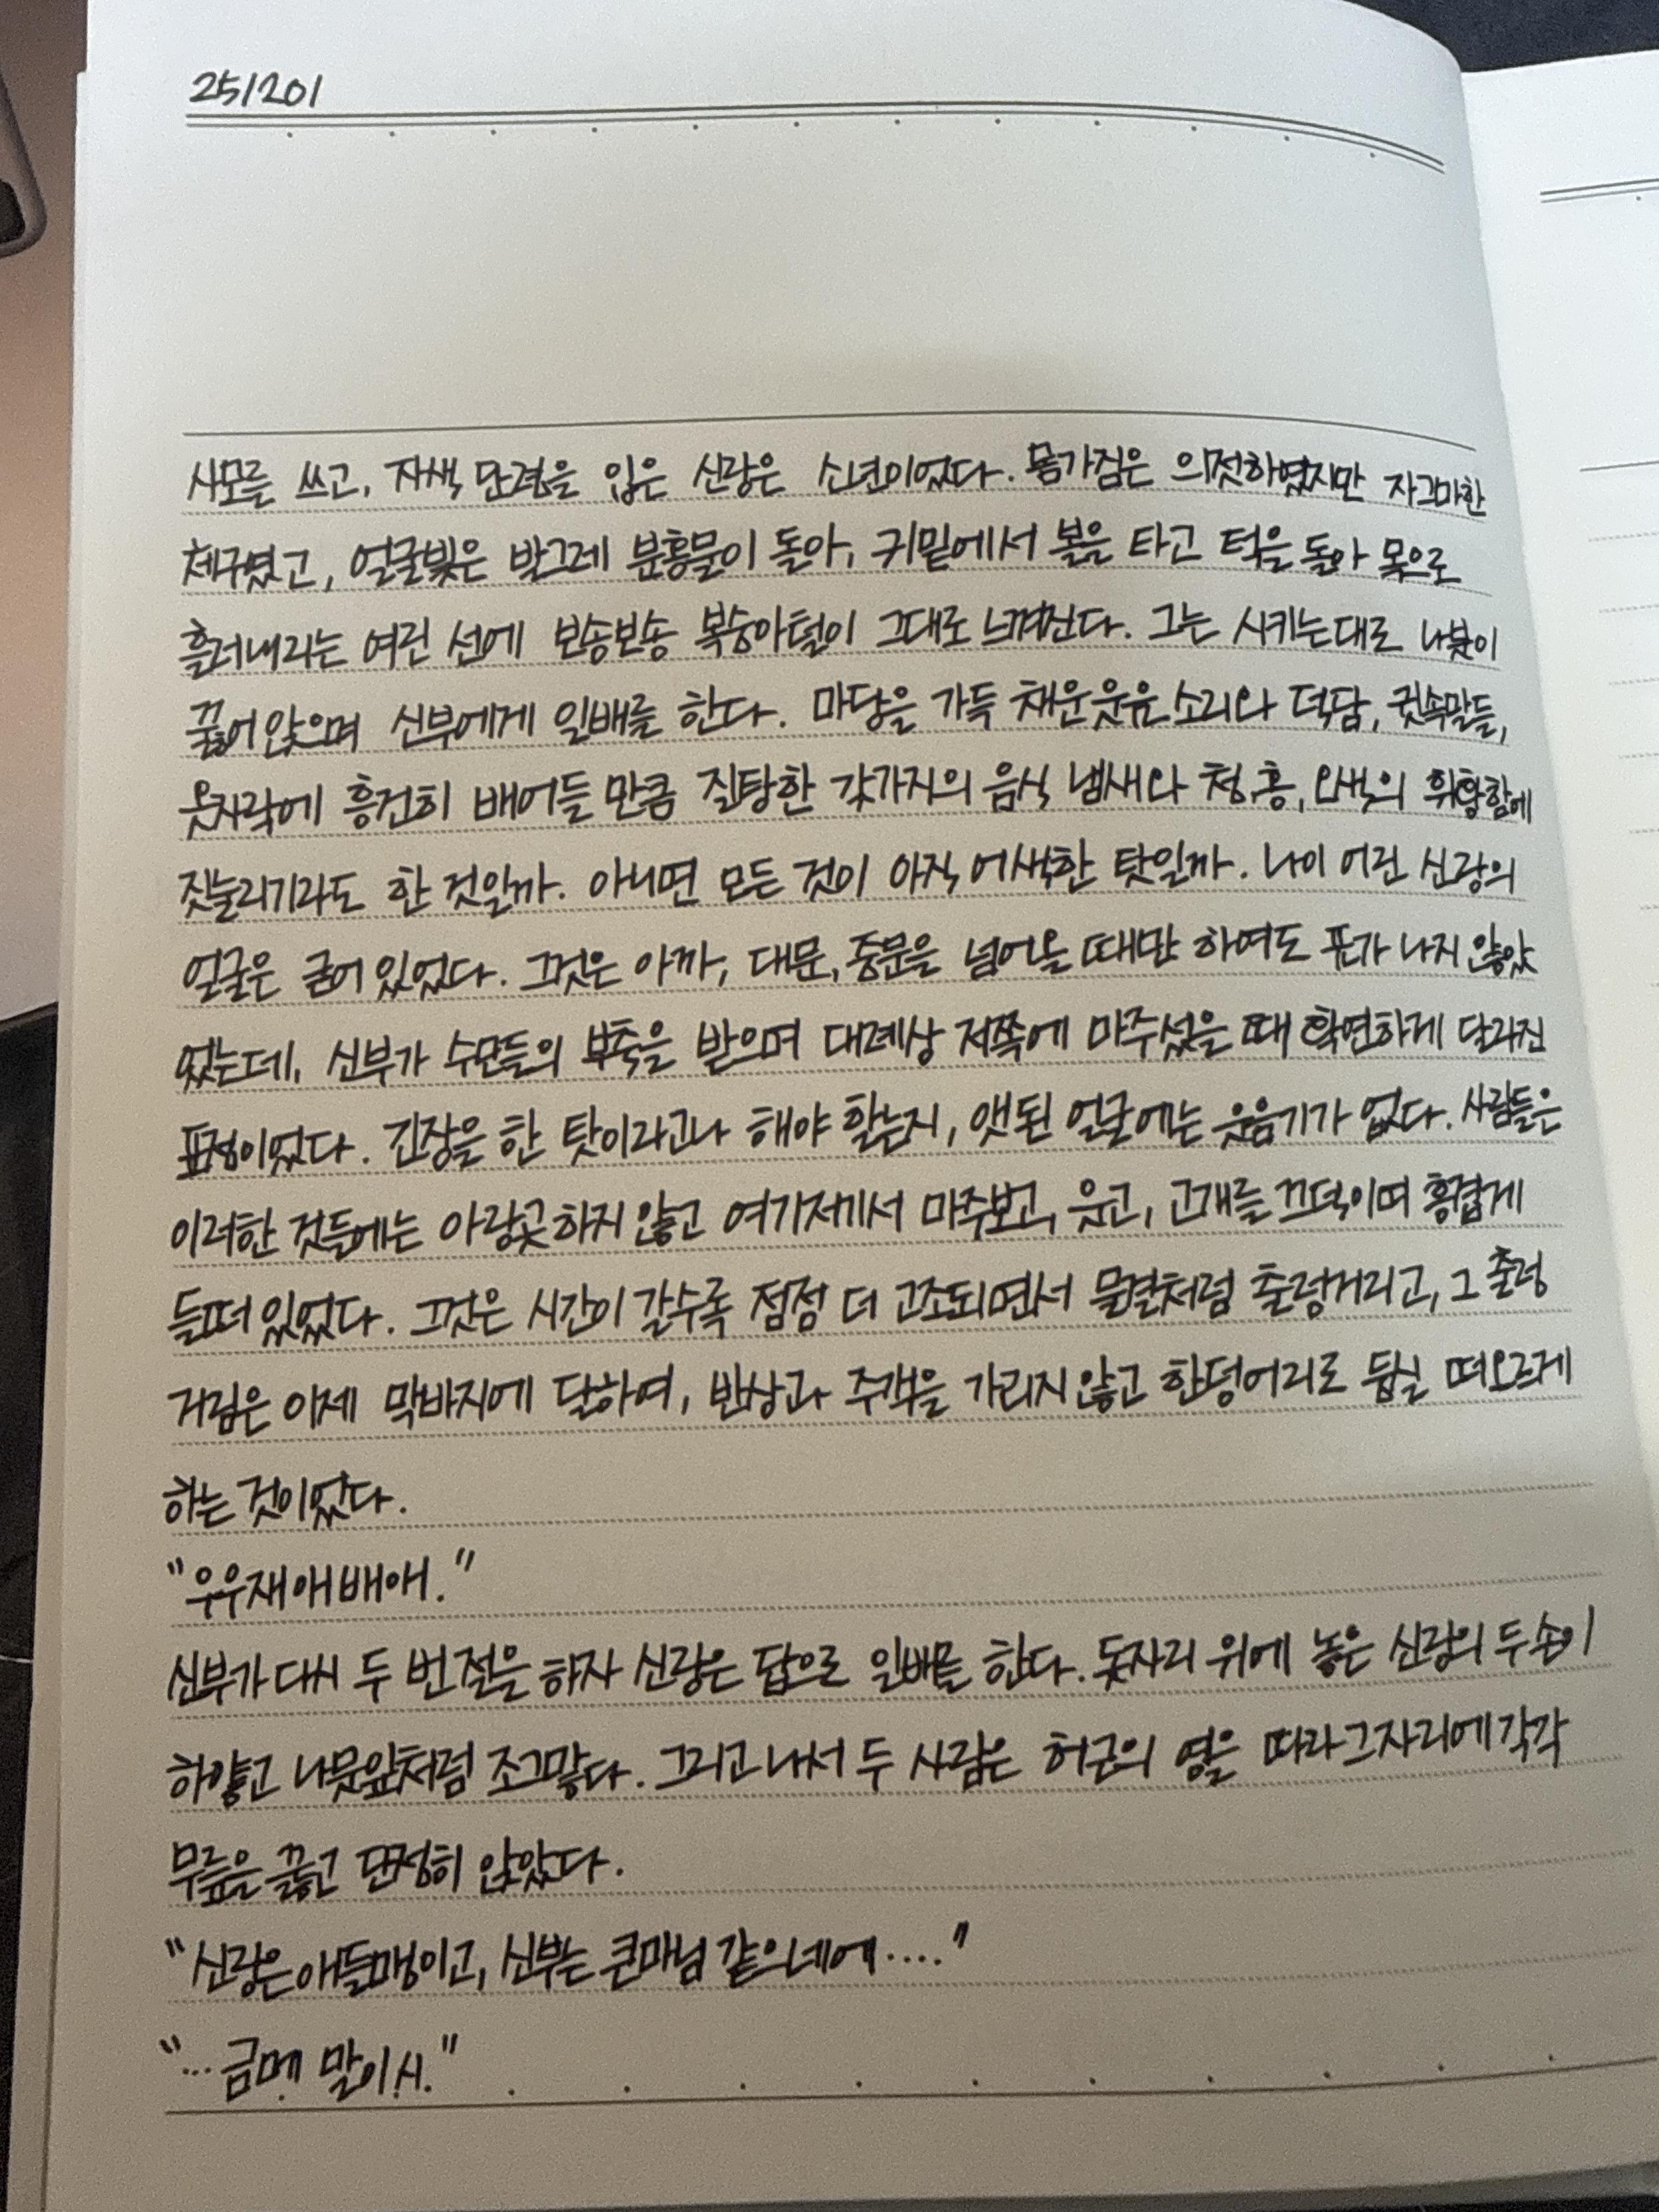 251201
사모를 쓰고, 자색 단령을 입은 신랑은 소년이었다. 몸가짐은 의젓하였지만 자그마한
체구였고, 얼굴빛은 발그레 분홍물이 돌아, 귀밑에서 볼을 타고 턱을 돌아 목으로
흘러내리는 여린 선에 보송보송 복숭아털이 그대로 느껴진다. 그는 시키는대로 나붓이
꿇어 앉으며 신부에게 일배를 한다. 마당을 가득 채운 웃음 소리와 덕담, 귓속말들,
옷자락에 흥건히 배어들 만큼 질탕한 갖가지의 음식 냄새와 청, 홍, 오색의 휘황함에
짓눌리기라도 한 것일까. 아니면 모든 것이 아직 어색한 탓일까. 나이 어린 신랑의
얼굴은 굳어 있었다. 그것은 아까, 대문, 중문을 넘어올 때만 하여도 표가 나지 않았
었는데, 신부가 수모들의 부축을 받으며 대례상 저쪽에 마주섰을 때 확연하게 달라진
표정이었다. 긴장을 한 탓이라고나 해야 할는지, 앳된 얼굴에는 웃음기가 없다. 사람들은
이러한 것들에는 아랑곳하지 않고 여기저기서 마주보고, 웃고, 고개를 끄덕이며 흥겹게
들떠 있었다. 그것은 시간이 갈수록 점점 더 고조되면서 물결처럼 출렁거리고, 그 출렁
거림은 이제 막바지에 달하여, 반상과 주객을 가리지 않고 한덩어리로 둥실 떠오르게
하는 것이었다.
"우우재애배애."
신부가 다시 두 번 절을 하자 신랑은 답으로 일배를 한다. 돗자리 위에 놓은 신랑의 두 손이
하얗고 나뭇잎처럼 조그맣다. 그리고 나서 두 사람은 허근의 영을 따라 그 자리에 각각
무릎을 꿇고 단정히 앉았다.
"신랑은 애들맹이고, 신부는 큰마님 같으네에····."
"…금메 말이시."